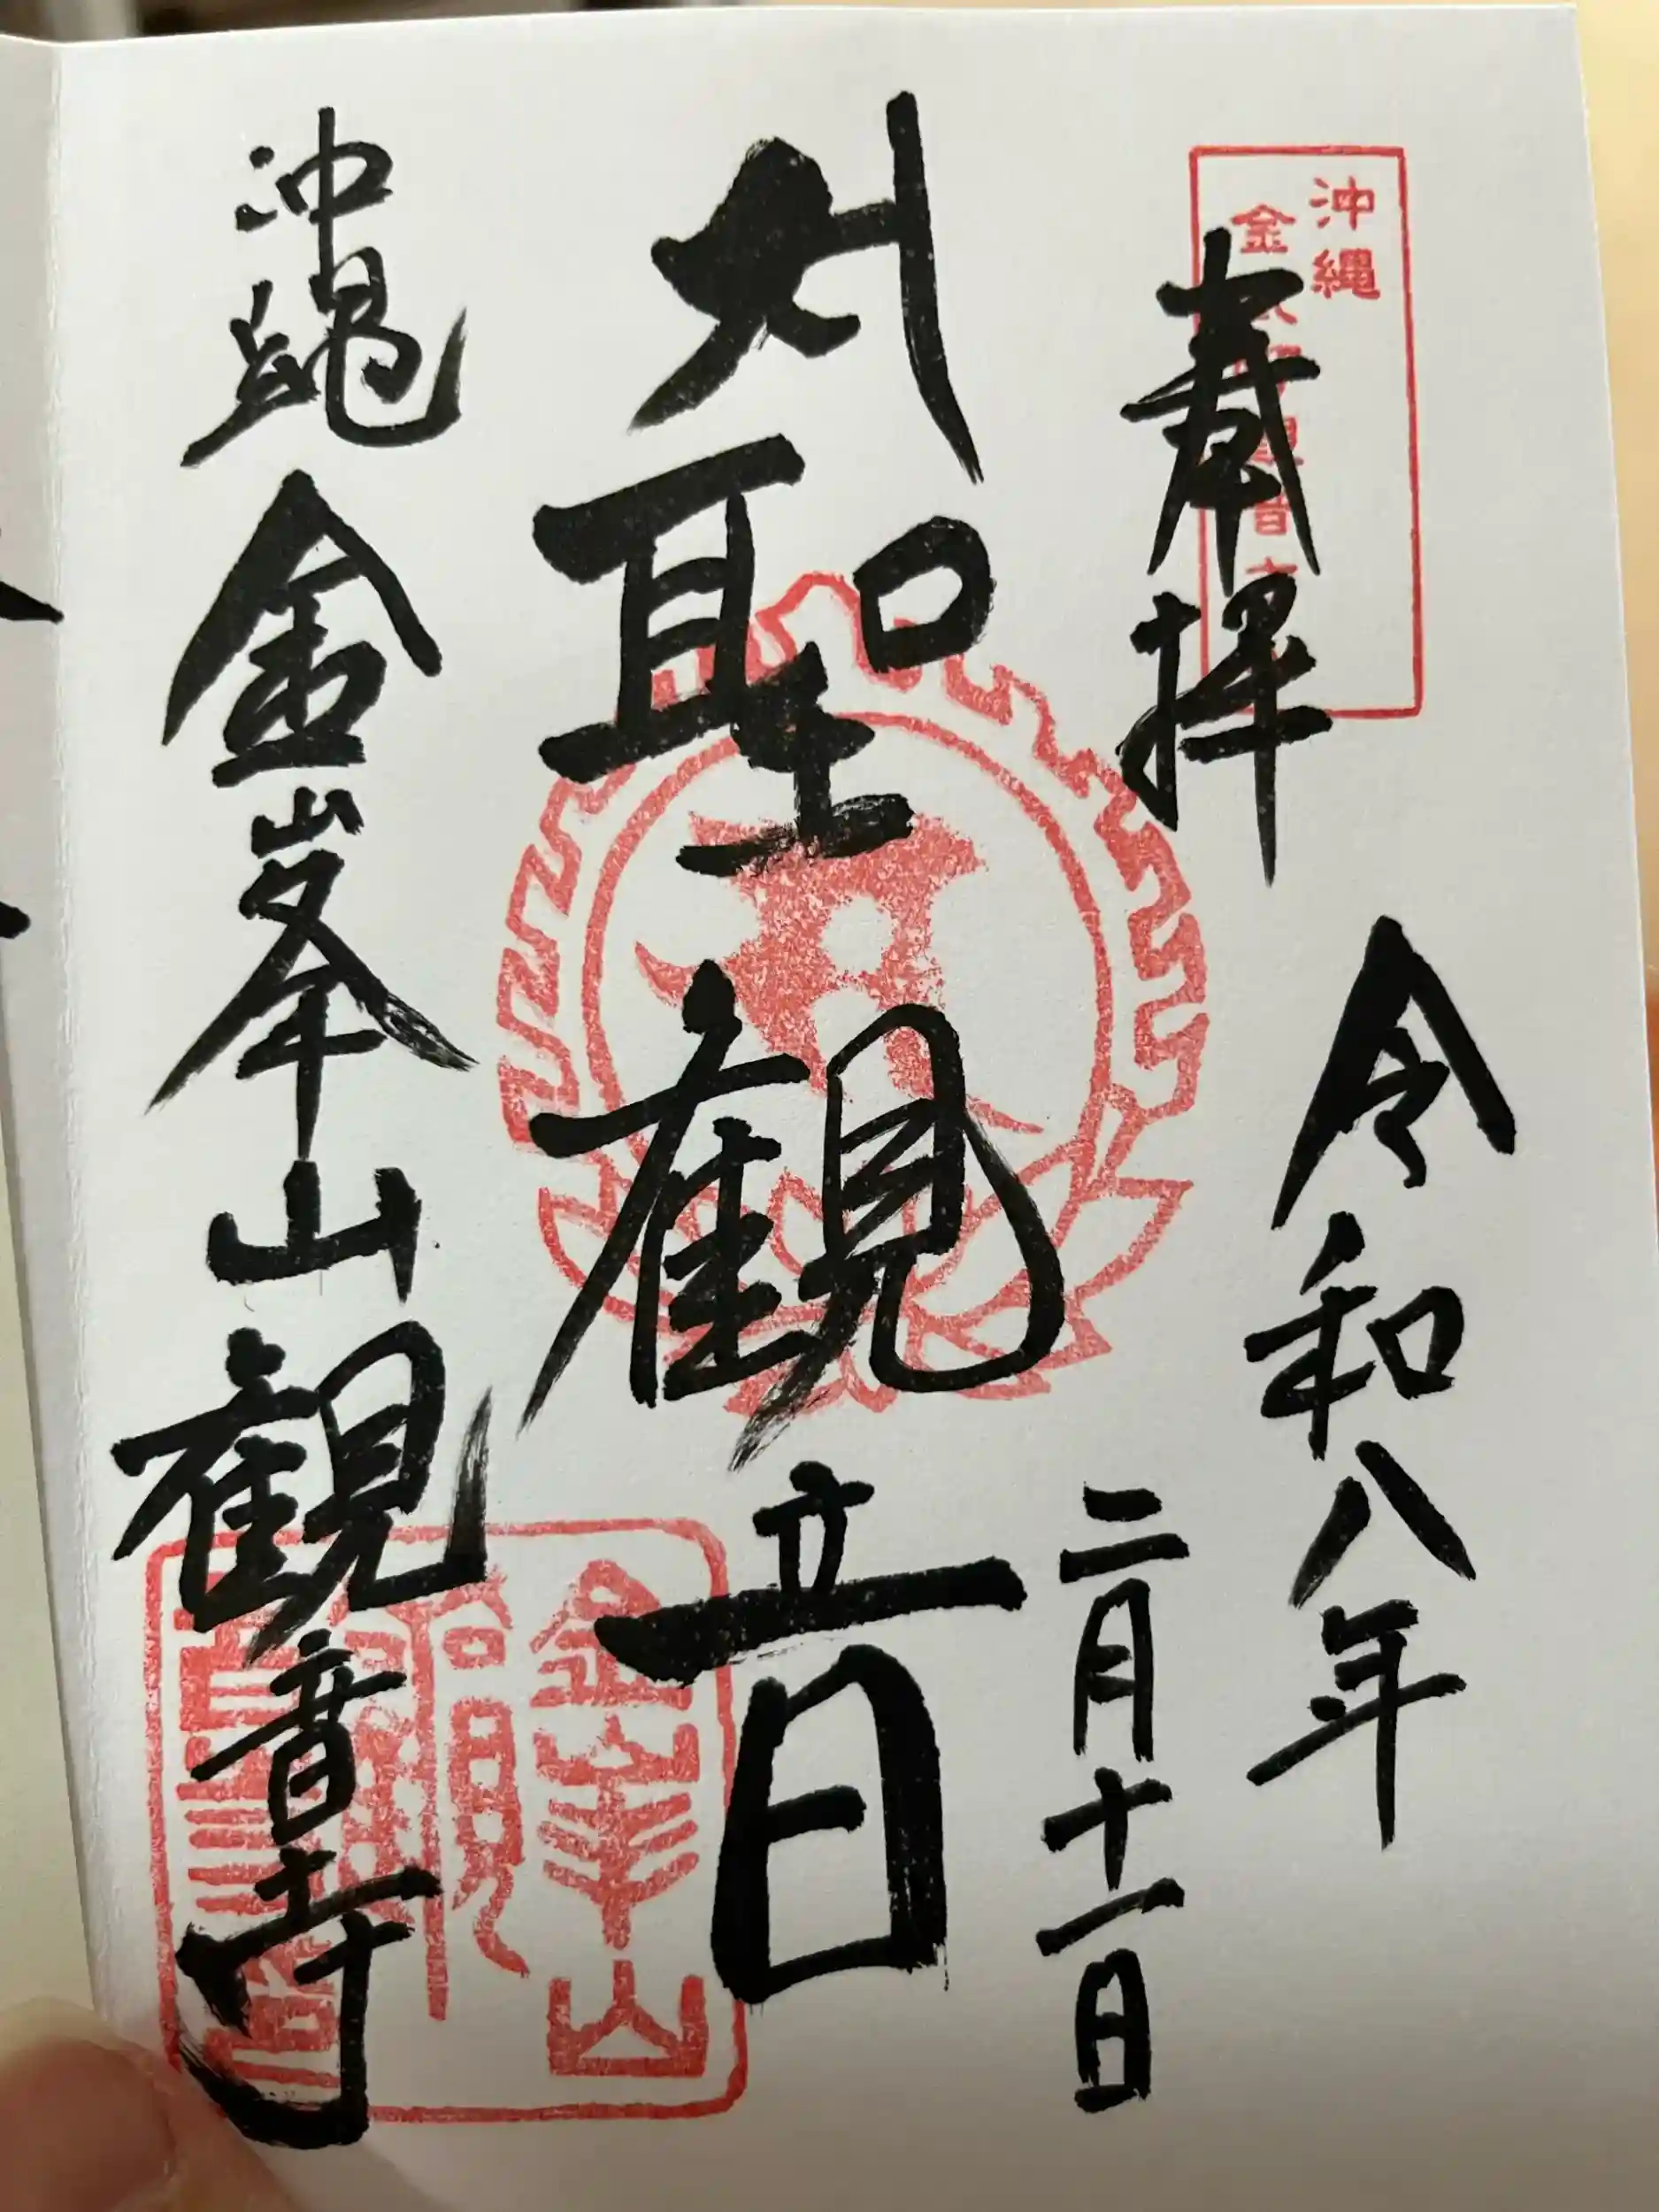 沖縄
金
奉拝
令和八年
二月十一日
大聖観音
沖縄金峯山観音寺
金峯山